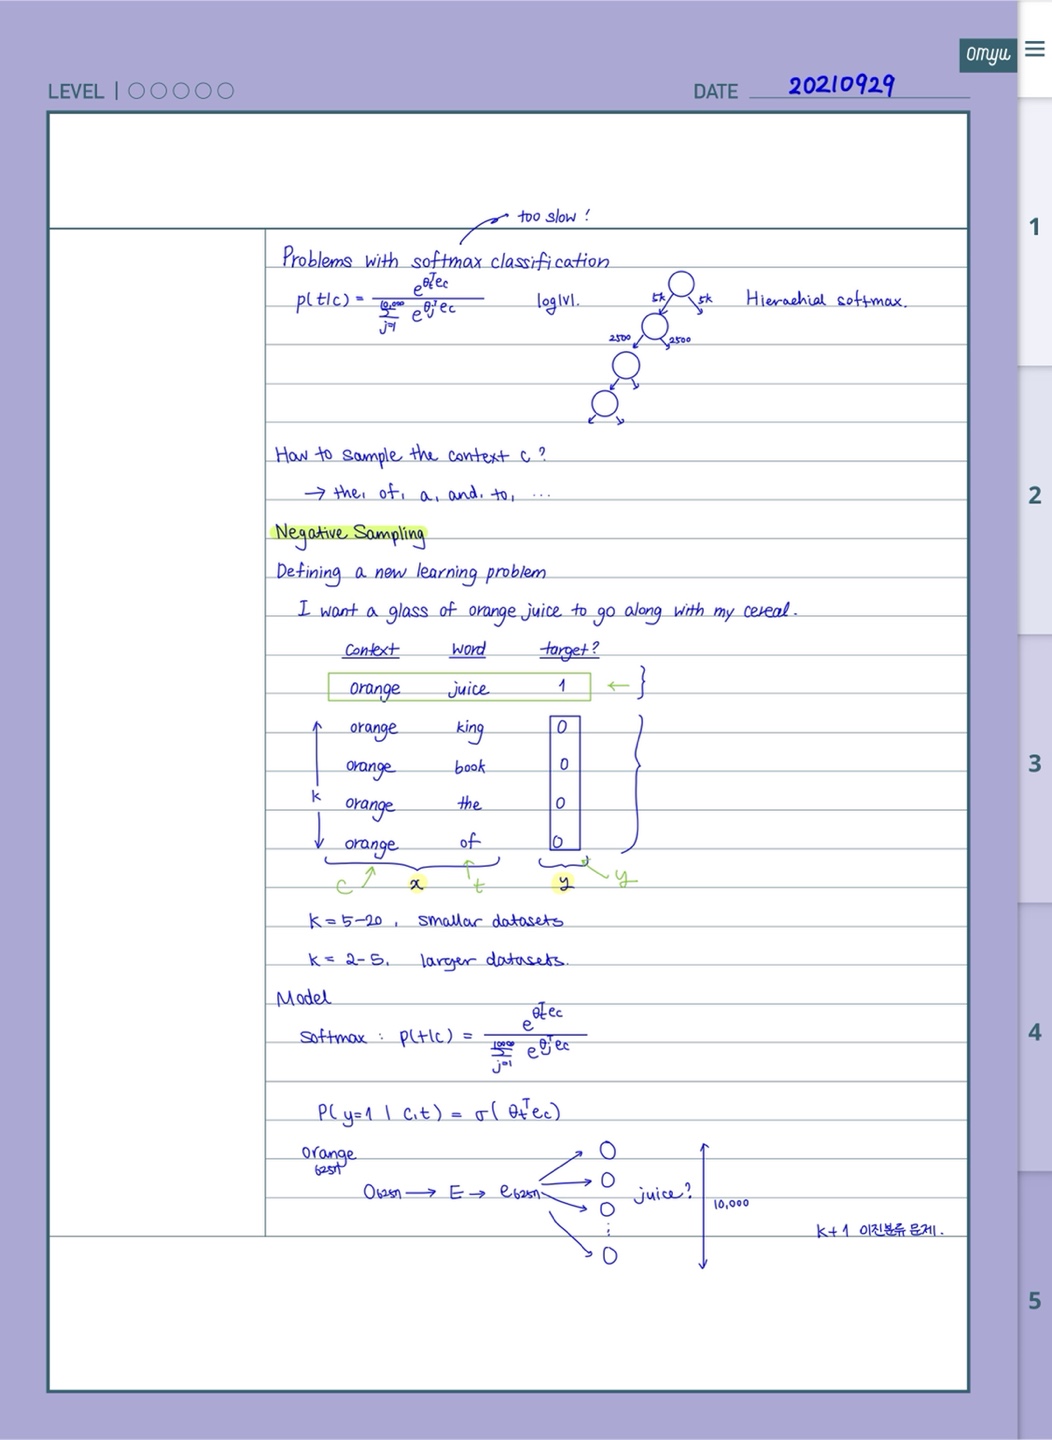 omyu
LEVEL |
DATE 20210929
too slow!
Problems with softmax classification
p(t|c) = e^{θ_t^T e_c} / Σ_{j=1}^{10,000} e^{θ_j^T e_c}
log|v|.
5k 5k
Hierachial softmax.
2500 2500
How to sample the context c?
→ the, of, a, and, to, ...
Negative Sampling
Defining a new learning problem
I want a glass of orange juice to go along with my cereal.
Context word target?
orange juice 1 ←
orange king 0
orange book 0
k
orange the 0
orange of 0
c x t y y
k = 5-20, smallar datasets
k = 2-5, larger datasets.
Model
Softmax : p(t|c) = e^{θ_t^T e_c} / Σ_{j=1}^{10000} e^{θ_j^T e_c}
P(y=1 | c,t) = σ(θ_t^T e_c)
Orange
6257
O6257 → E → e6257
juice?
10,000
k+1 이진분류 문제.
1
2
3
4
5